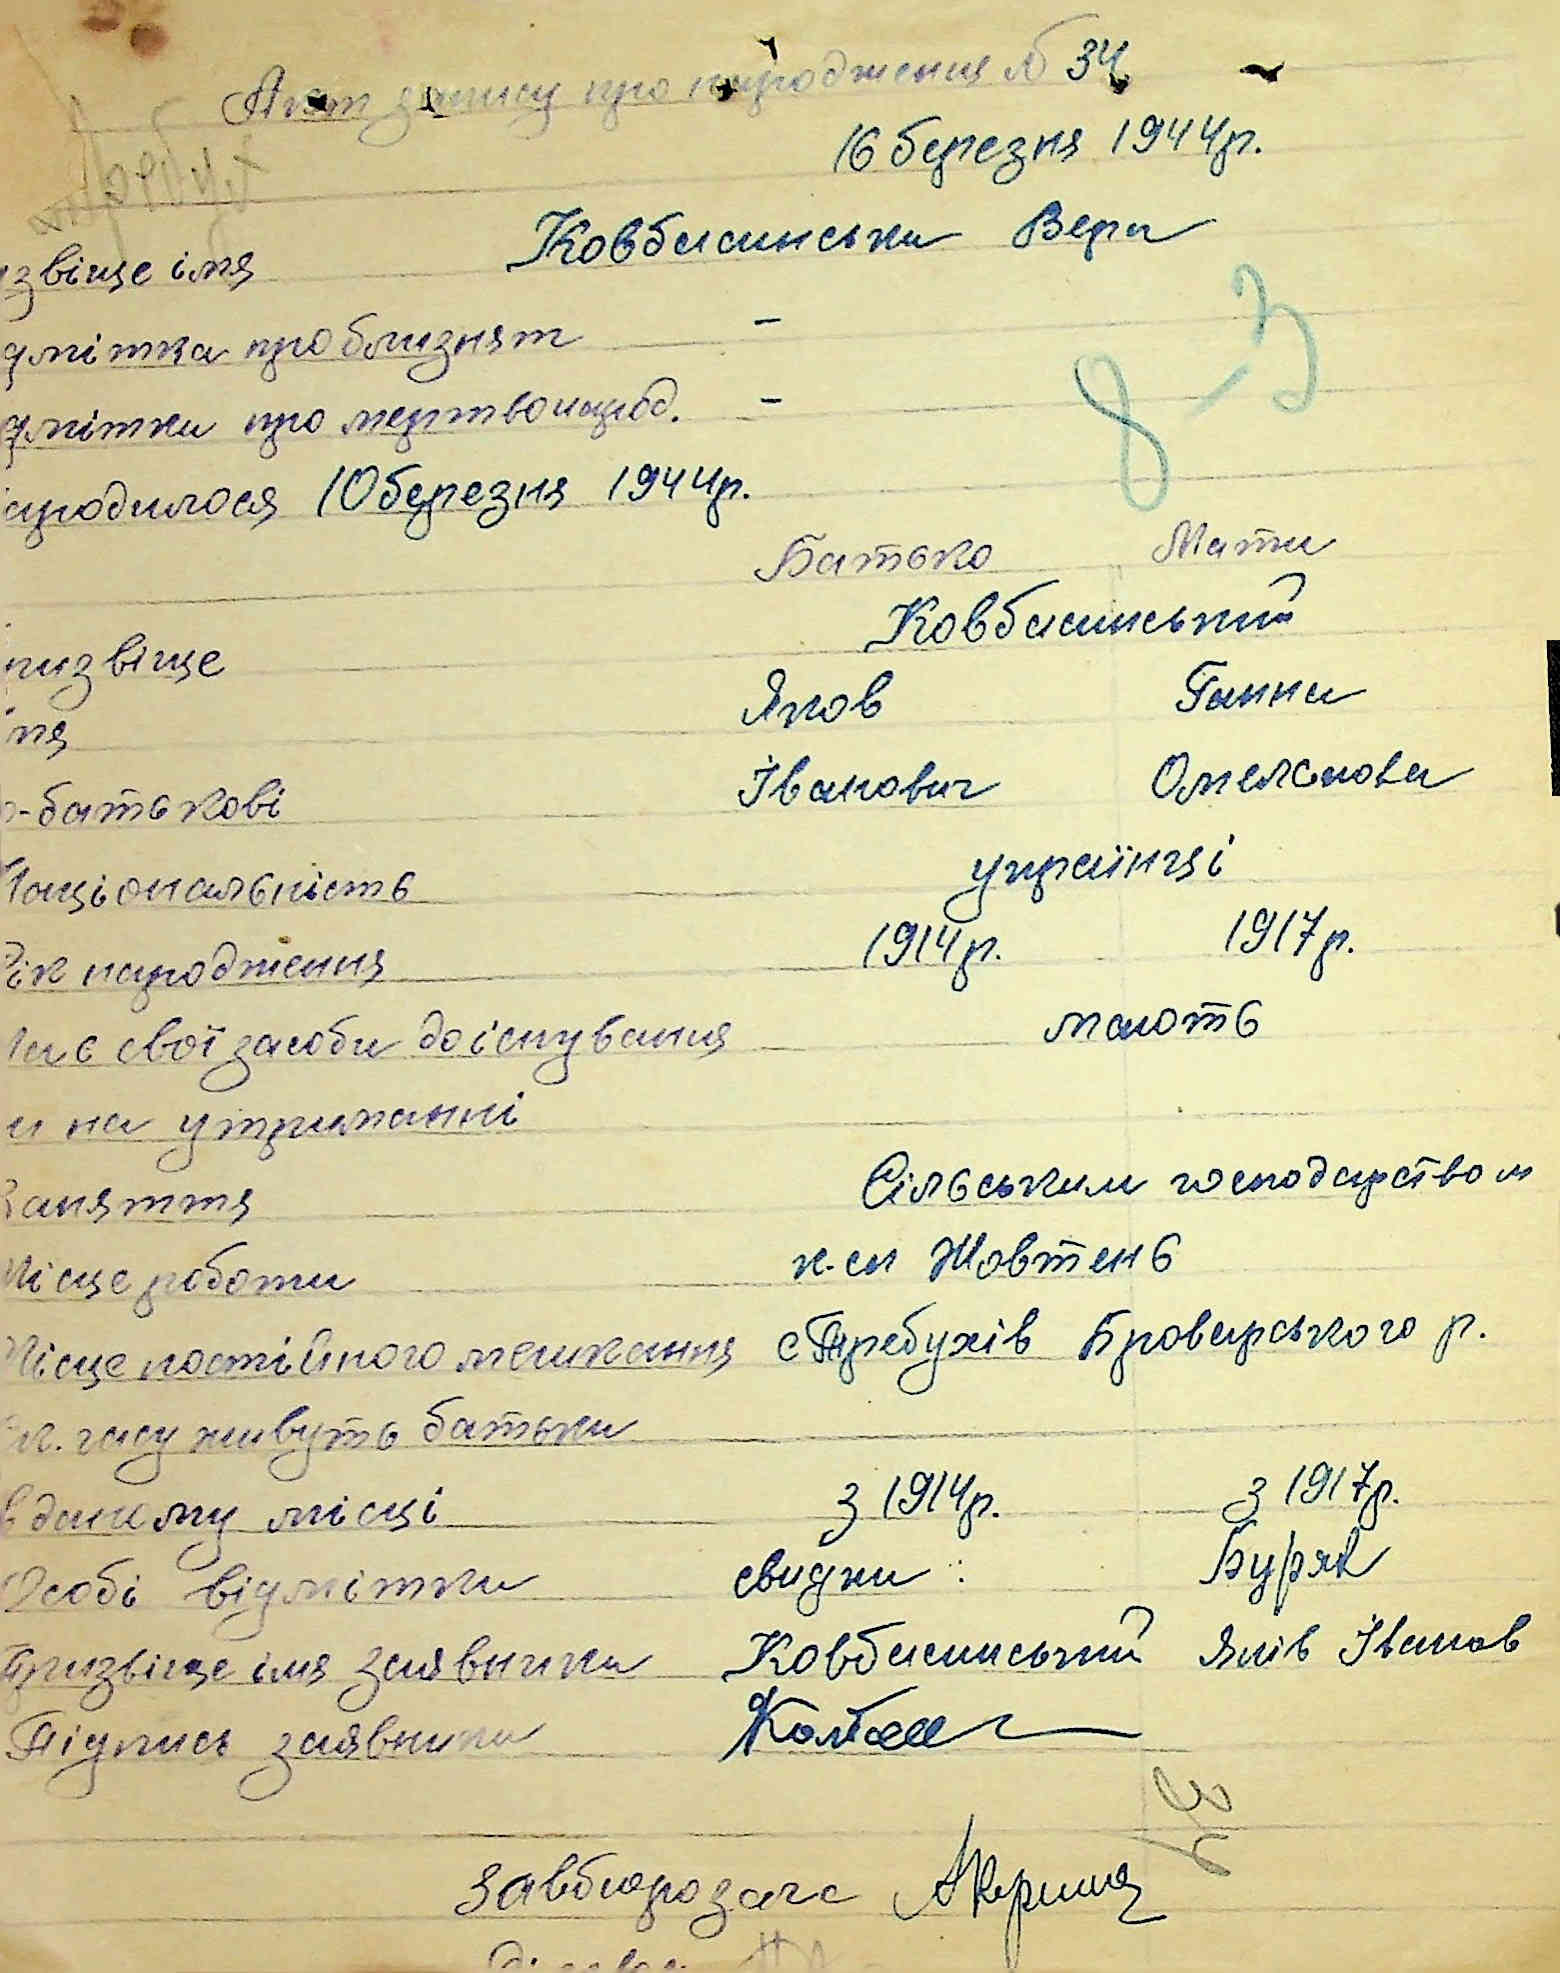 Акт запису про народження № 34
16 березня 1944р.
ізвіще імя Ковбасинська Вера
дмітка про близнят -
дмітка про мертвонарод. -
ародилося 10 березня 1944р.
Батько Мати
Ковбасинський
ризвіще
імя Яков Ганна
о-батькові Іванович Омелянова
Національність українці
Рік народження 1914р. 1917р.
Має свої засоби до існування мають
и на утриманні
Заняття Сільським господарством
Місце роботи к-сп Жовтень
Місце постійного мешкання с Требухів Броварського р.
як. часу живуть батьки
в даному місці з 1914р. з 1917р.
Особі відмітки свидки : Буряк
Призвіще імя заявника Ковбасинський Яків Іванов
Підпись заявника
Завбюрозагс
8-3